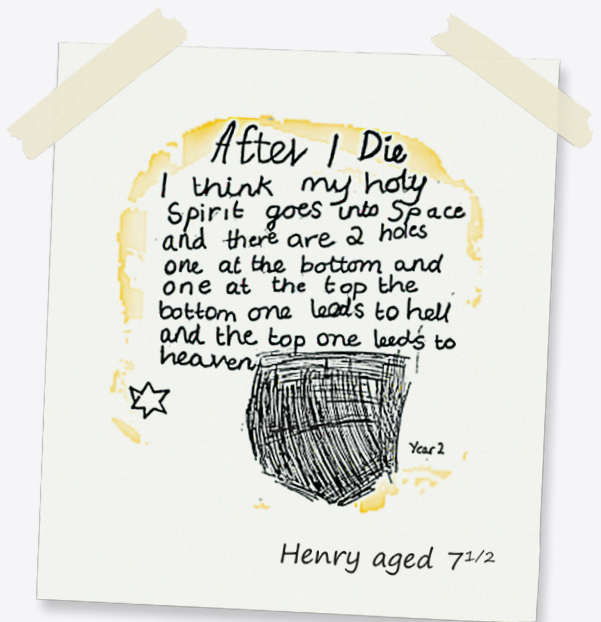 After I Die
I think my holy
Spirit goes into Space
and there are 2 holes
one at the bottom and
one at the top the
bottom one leads to hell
and the top one leeds to
heaven
Year 2
Henry aged 7 1/2